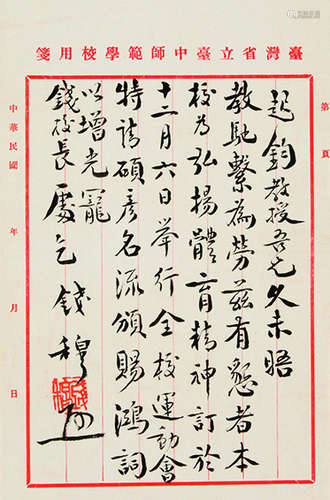 臺灣省立臺中師範學校用箋
第 頁
起鈞教授吾兄久未晤
教馳繫為勞茲有懇者本
校為弘揚體育精神訂於
十二月六日舉行全校運動會
特請碩彥名流頒賜鴻詞
以增光寵
錢校長處乞 錢穆
中華民國 年 月 日